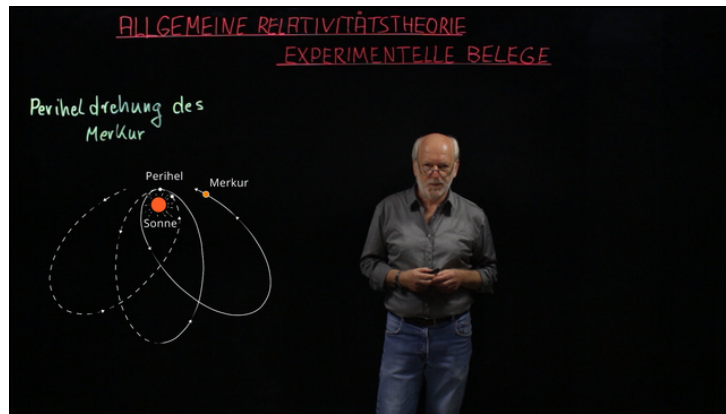 ALLGEMEINE RELATIVITÄTSTHEORIE
EXPERIMENTELLE BELEGE
Periheldrehung des
Merkur
Perihel
Merkur
Sonne